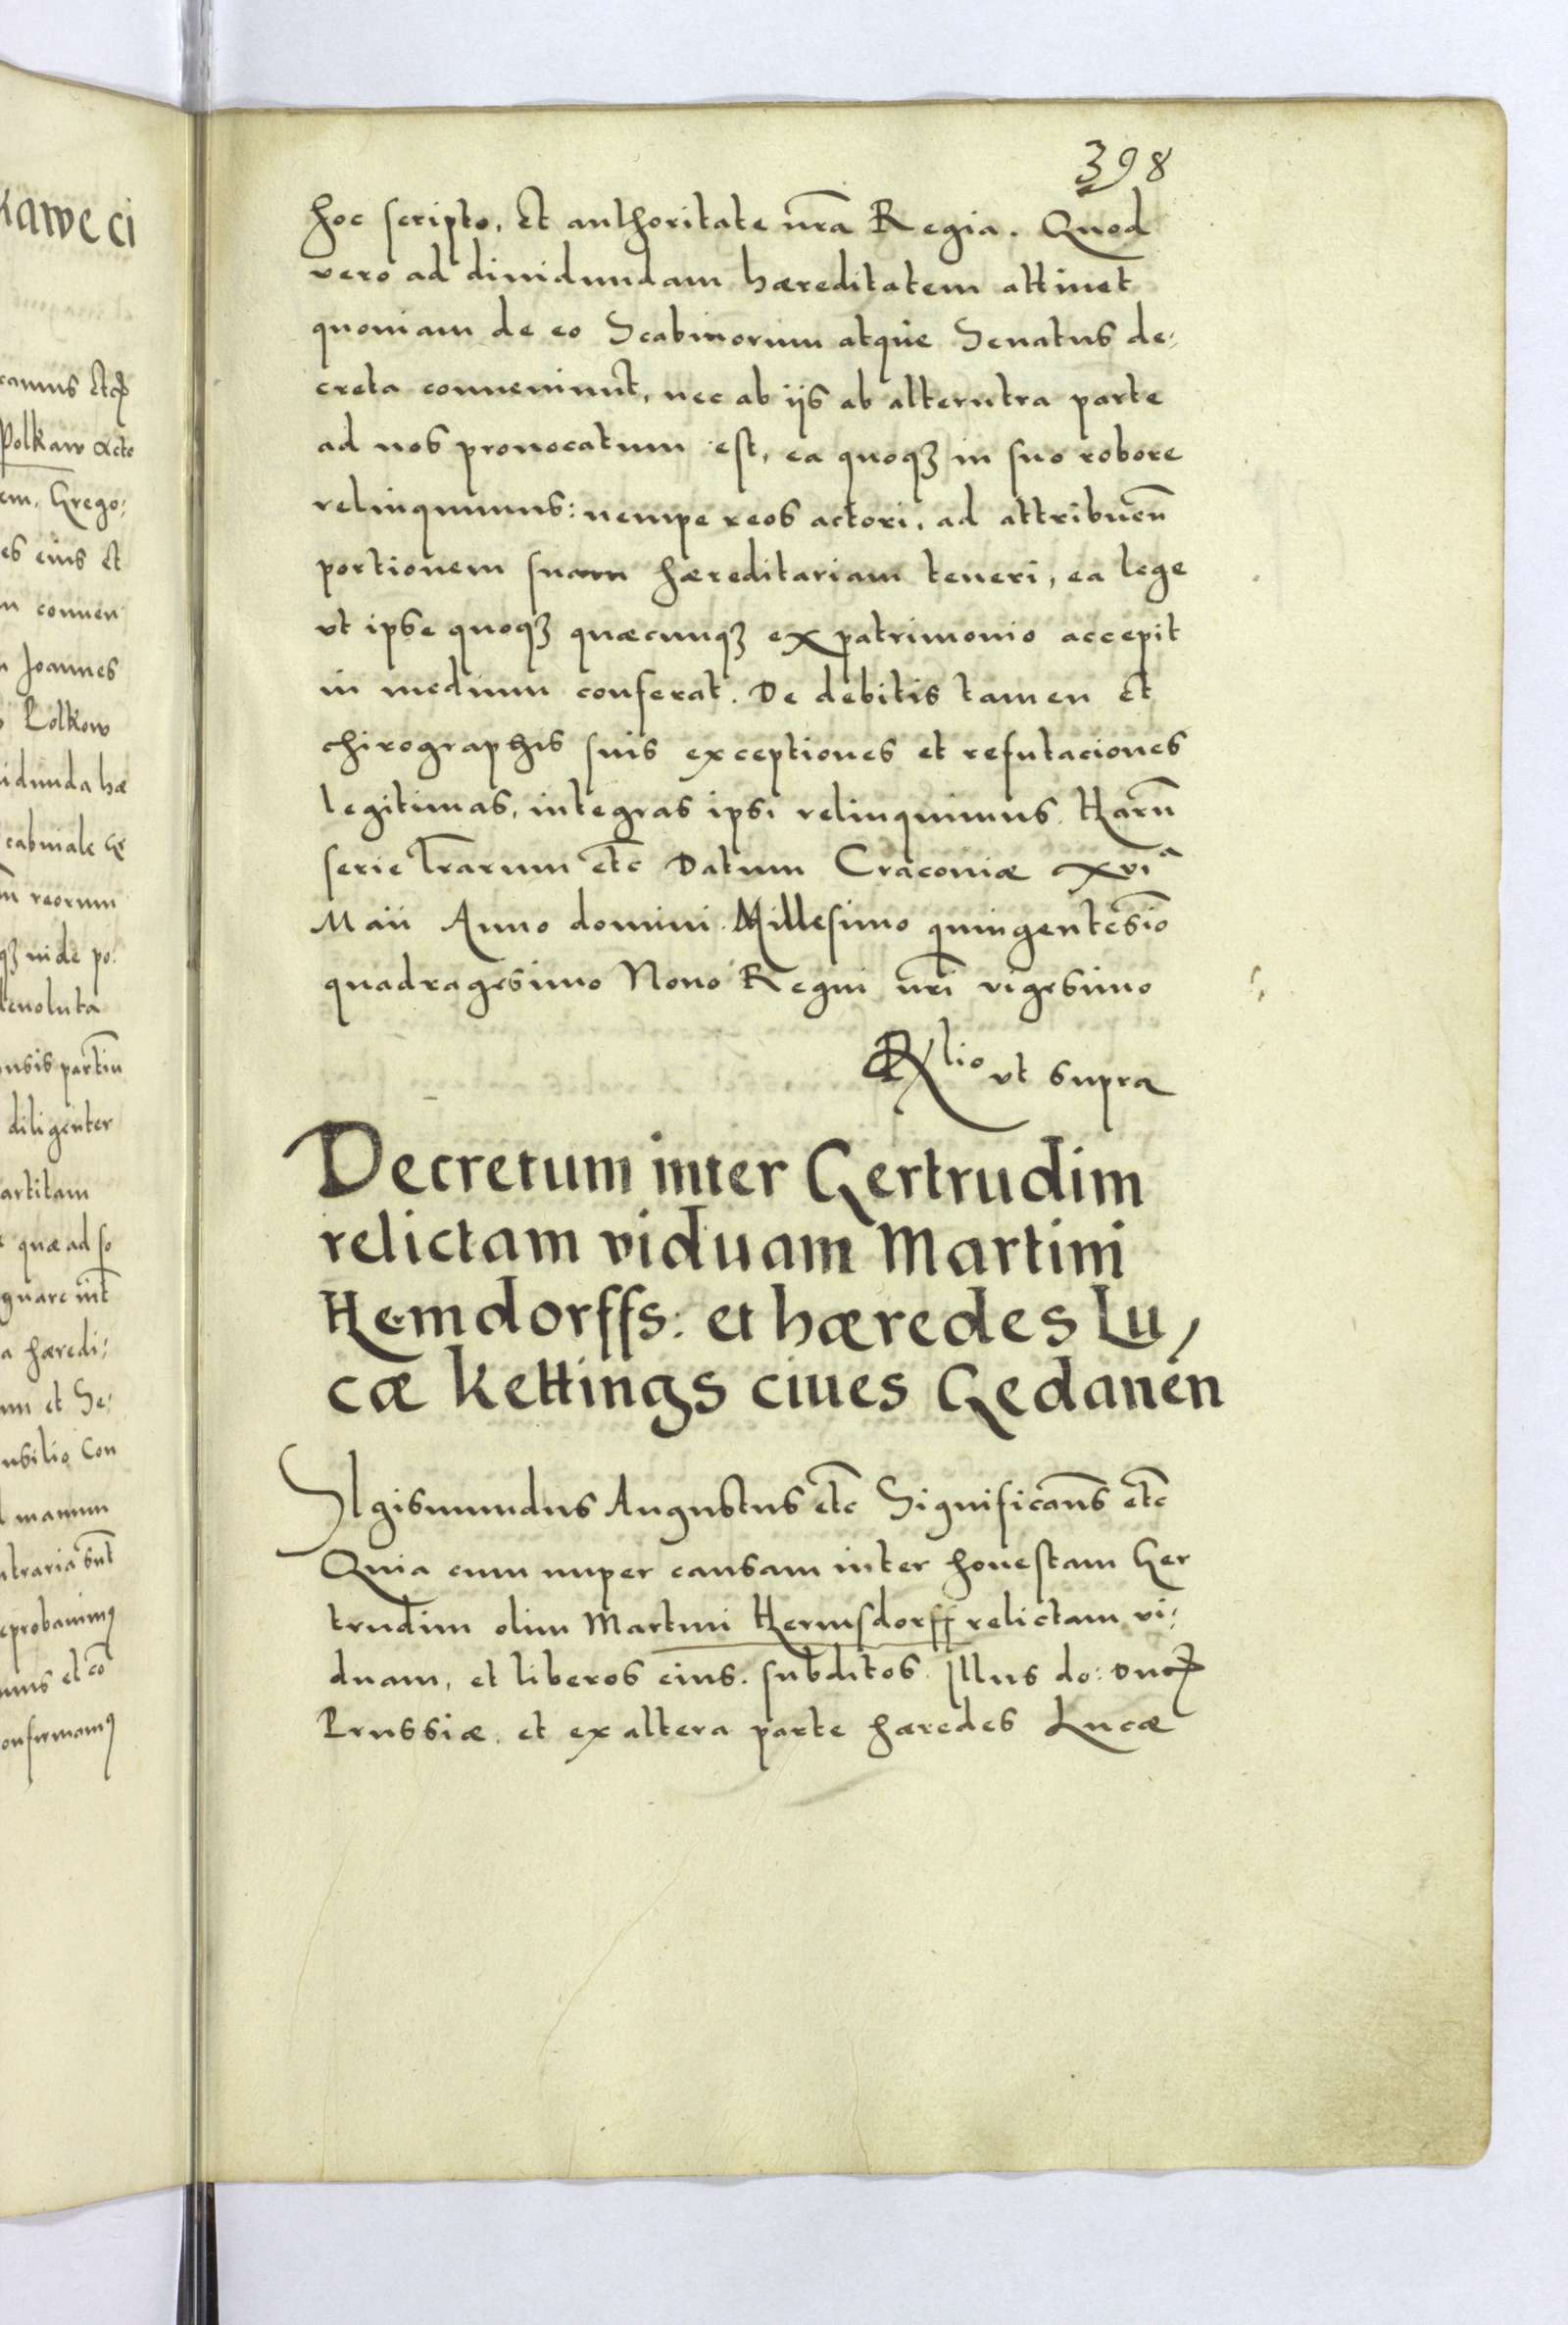 kaweci
ramus Etcꝫ
Polkaw acto
em, Grego:
es eius et
m conuen
n Joannes
Polkow
idunda hæ
cabinale
reorum
qꝫ inde po:
deuoluta
nsis partiū
diligenter
artitam
quæ ad so
a hæredi:
um et Se:
nsilio Con
manum
ntraria sūt
eprobauimꝰ
mus et cō
onfirmamꝰ
398
hoc scripto, Et authoritate nr̄a Regia. Quod
vero ad diuidundam hæreditatem attinet
quoniam de eo Scabinorum atque Senatus de:
creta conueniunt, nec ab ijs ab alterutra parte
ad nos prouocatum est, ea quoqꝫ in suo robore
relinquimus: nempe reos actori, ad attribuen̄
portionem suam hæreditariam teneri, ea lege
vt ipse quoqꝫ quæcunqꝫ ex patrimonio accepit
in medium conferat. De debitis tamen Et
chirographis suis exceptiones et refutaciones
legitimas, integras ipsi relinquimus. Harū
serie lr̄arum etc̄ Datum Cracouiæ xvia
Maii Anno domini Millesimo quingentesīo
quadragesimo Nono Regni nr̄i vigesimo
Rlio vt supra
Decretum inter Gertrudim
relictam viduam Martini
Hemdorffs: et hæredes Lu,
cæ Kettings ciues Gedanēn
SIgismundus Augustus etc̄ Significam̄s etc̄
Quia cum nuper causam inter honestam Ger
trudim olim Martini Hermsdorff relictam vi:
duam, et liberos eius. subditos Illus do: Ducꝫ
Prussiæ, et ex altera parte hæredes Lucæ